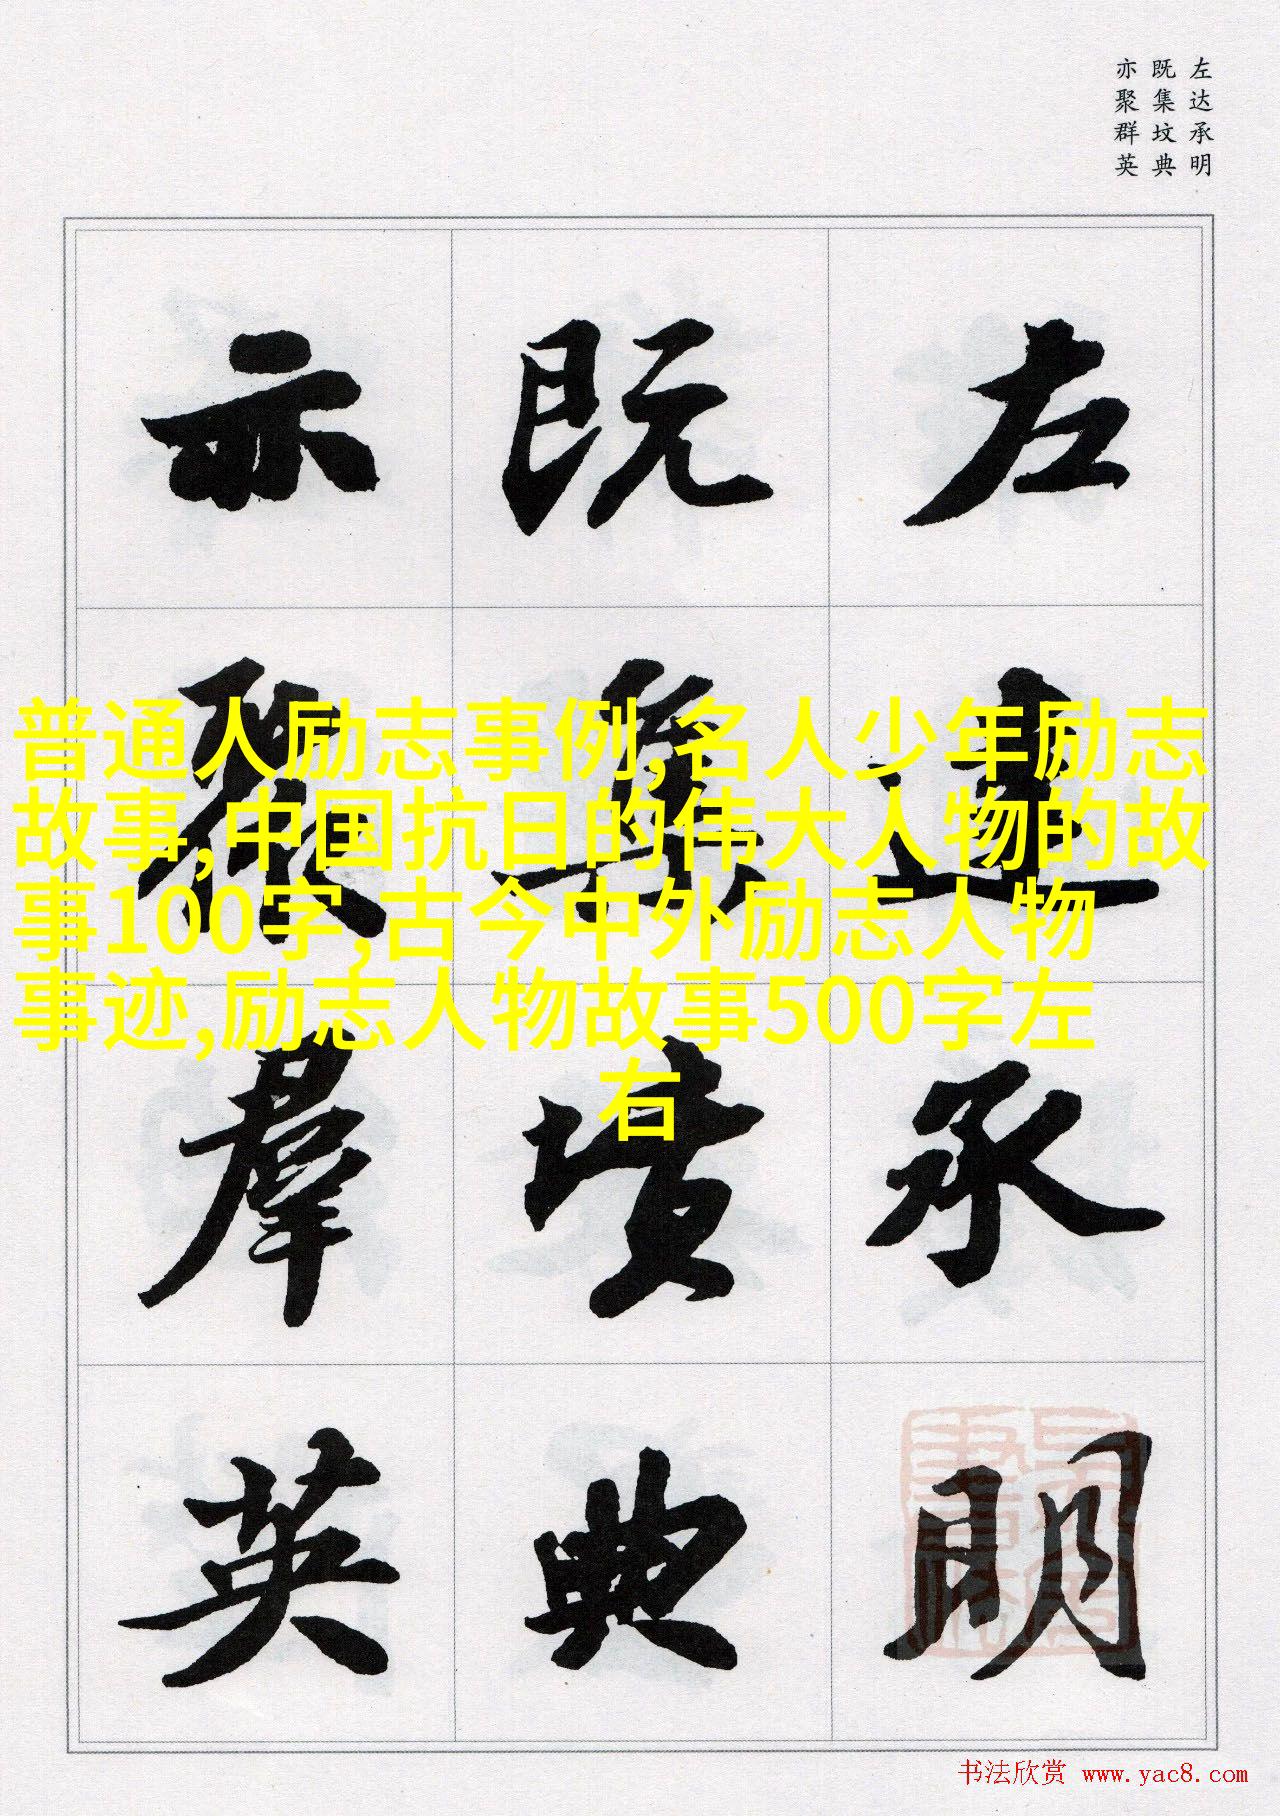 左达承明
既集坟典
亦聚群英
左達承明
既集墳典
亦聚羣英
普通人励志事例,名人少年励志
故事,中国抗日的伟大人物的故
事100字,古今中外励志人物
事迹,励志人物故事500字左
右
书法欣赏 www.yac8.com